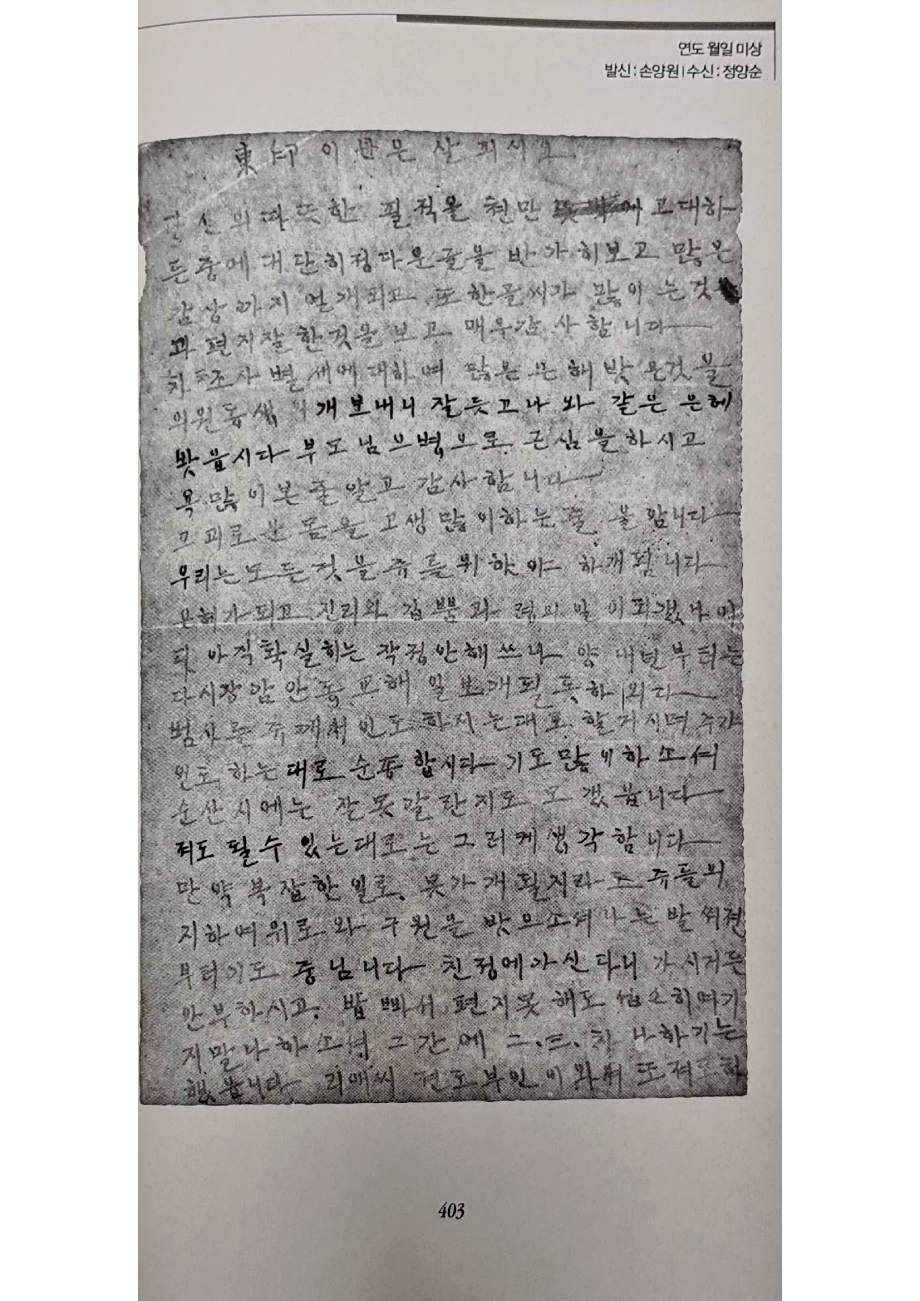 연도 월일 미상
발신 : 손양원 | 수신 : 정양순
東仁이 안문 살피시오
당신의 따뜻한 필적을 천만 고대하
든 중에 대단히 정다운 글을 반가히 보고 많은
감상까지 얻개되고 또한 글씨가 많이 는것
과 편지 잘 한것을 보고 매우 감사 합니다
조사 별세에 대하여 많은 은혜 밧은것을
의원동생 의개 보내니 잘 듯고 나와 같은 은혜
밧읍시다 부모님으 병으로 근심을 하시고
욕 많이 본 줄 알고 감사합니다
그 괴로운 몸을 고생 많이 하는 줄 압니다
우리는 모든것을 쥬를 위하야 하개됨니다
은혜가 되고 진리와 김뿜과
아직 확실히는 작정 안해쓰나 양 내년부터는
다시 장암 안동 교해 일 보개 될 듯 하외다
범사를 쥬께서 인도 하시는대로 할거시며 주가
인도 하는대로 순종 합시다 기도 많이 하소셔
순산시에는 잘 못갈란지도 모갰읍니다
저도 될 수 있는대로는 그러케 생각 합니다
만약 복잡한 일로 못가개 될지라도 쥬를 의
지하여 위로와 구원을 밧으소셔 나는 발써 전
부터 기도 중님니다 친정에 가신다니 가시거든
안부하시고. 밥빠서 편지 못해도 섭소히 여기
지말나 하소셔 그간에 차 나하기는
했읍니다 리애씨 전도부인이 와서 또 저도 하
403